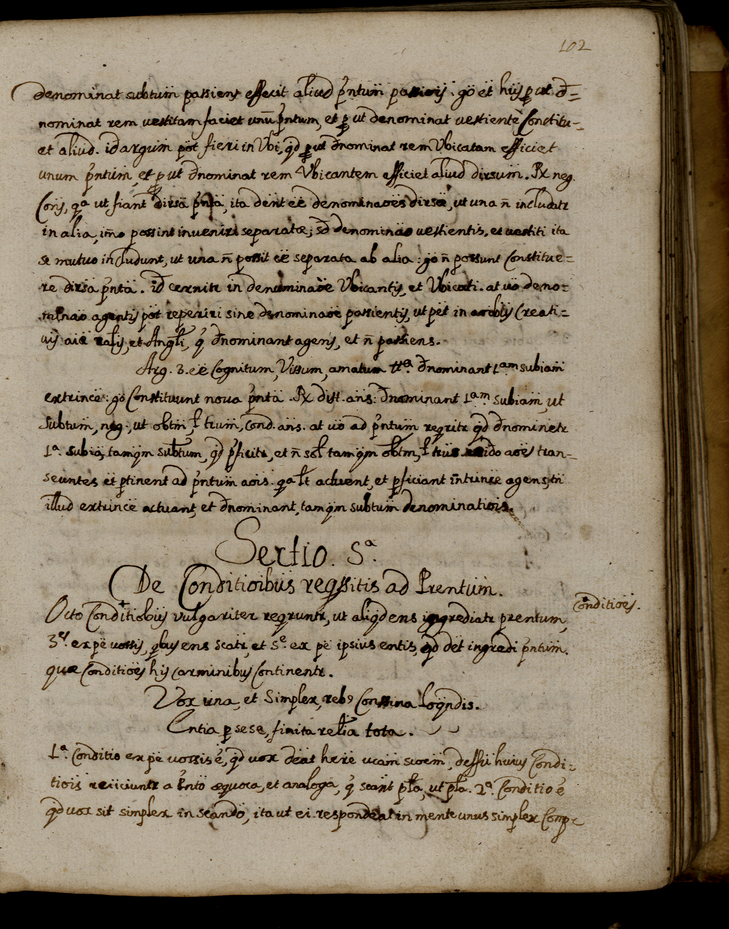 102
denominat subtum patiens efficit aliud p̄ntum passionis. gō et hīs p̄ ut d̄=
nominat rem vestitam faciet unū p̄ntum, et p̄ ut denominat vestientē Constitu-
et aliud. id argum pōt fieri in Ubi, qd̄ p̄ ut d̄nominat rem Ubicatam efficiet
unum p̄ntum, et p̄ ut dnominat rem Ubicantem efficiet aliud dirsum. Rx neg.
Cōns, qa ut fiant dirsa p̄nta, ita dent eē denominaōes dirsæ, ut una n̄ includatr
in alia, imo possint inveniri separatæ; sd̄ denominaō vestientis, et vestiti ita
se mutuo includunt, ut una n̄ possit eē separata ab alia: gō n̄ possunt Constitue=
re dirsa p̄nta. id cernitr in denominaōe Ubicantis, et Ubicati. at uō deno=
minaō agentis pōt reperiri sine denominaōe patientis, ut pēt in Creati=
uīs aiæ ralis, et Angli, q̄ d̄nominant agens, et n̄ patiens.
Arg. 3. eē Cognitum, Visum, amatum d̄nominant 1am subiam
extrince: gō Constituunt noua p̄nta. Rx dist. ans: d̄nominant 1am subiam, ut
subtum, neg; ut obtm, Cond. ans. at uō ad p̄ntum reqritr qd̄ dnominetr
1a subia, tamqm subtum, qd̄ p̄ficitr, et n̄ sol tamqm obtm, aōes tran=
seuntes et p̄tinent ad p̄ntum aōis. qa lt̄ actuent, et p̄ficiant intrince agens, tn̄
illud extrince actuant, et d̄nominant, tamqm subtum denominatiōis.
Sectio. 5a
De Conditioibus reqsitis ad Prentum.
Conditiōes.
Octo Conditiōbus vulgariter reqruntr, ut aliqd ens ingrediatr prentum,
3es ex pē uōcis, qbus ens scatr, et 5e ex pē ipsius entis, qd̄ det ingredi p̄ntum.
quæ Conditiōes his carminibus Continentr.
Vox una, et Simplex, reb9 Conssina loqndis.
Entia p̄ se se, finita relia tota.
1a Conditio ex pē uocis ē, qd̄ uox deat here unam scōem, deffū huius Condi=
tiōis reiiciuntr a p̄nto æquoca, et analoga, q̄ scant pla, ut pla. 2a Conditio ē
qd̄ uox sit simplex in scando, ita ut ei respondeat in mente unus simplex Comp=